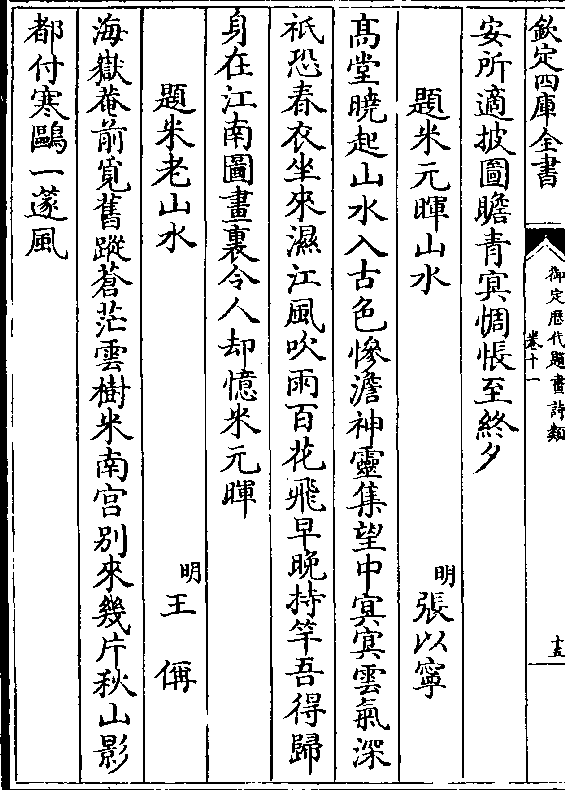 欽定四庫全書
御定歷代題畫詩類
卷十一
安所適披圖瞻青冥惆悵至終夕
題米元暉山水
明
張以寧
髙堂曉起山水入古色慘澹神靈集望中冥冥雲氣深
祇恐春衣坐來濕江風吹雨百花飛早晚持竿吾得歸
身在江南圖畫裏令人却憶米元暉
題米老山水
明
王偁
海嶽菴前覓舊蹤蒼茫雲樹米南宫别來幾片秋山影
都付寒鷗一邃風